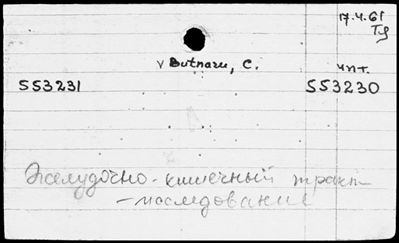 17.4.61
Tg
v Butnaru, C. чит.
553231 553230
Желудочно-кишечный тракт
- исследование